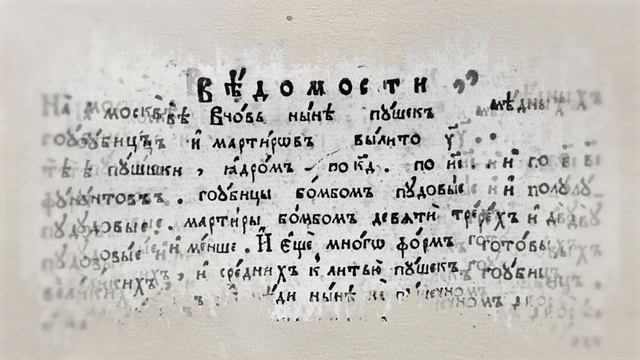 вѣдомости
На москвѣ вновь нынѣ пушек мѣдныхъ
гоубицъ и мартировъ вылито у҃
тѣ пушки, ядромъ по к҃д. по
фунтовъ. гоубицы бомбом пудовые и полу
пудовые. мартиры бомбомъ девяти трехъ и дву
пудовые и менше. И еще многѡ формъ готовыхъ
великихъ, и среднихъ к литью пушекъ гоубицъ
нынѣ